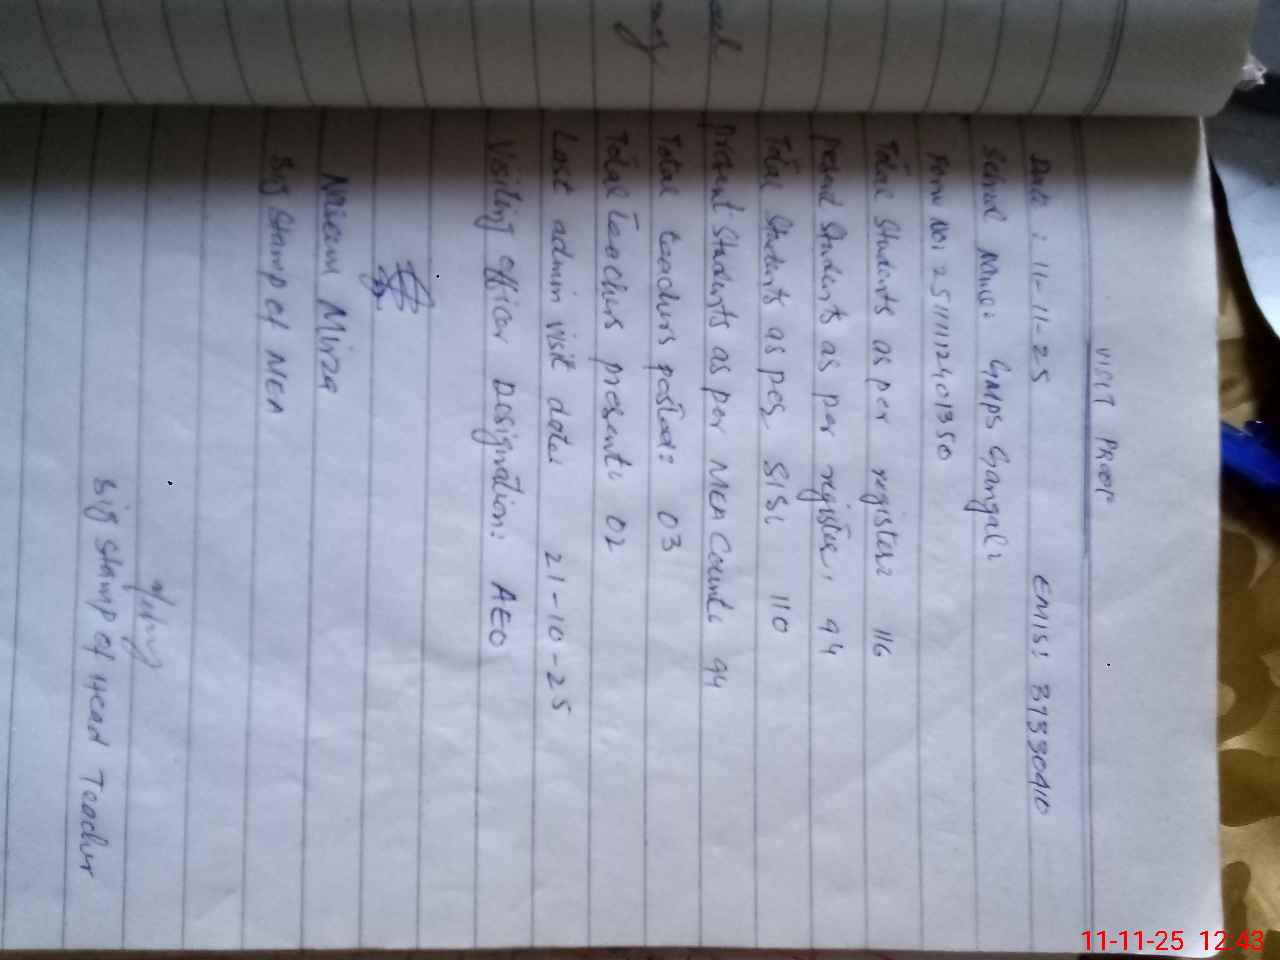 VISIT PROOF
Date: 11-11-25 EMIS: 37330410
School Name: GMPS Gangal:
Form No: 25111112401350
Total Students as per register: 116
Present Students as per register: 94
Total Students as per SIS: 110
Present Students as per MEA Count: 94
Total teachers posted: 03
Total Teachers present: 02
Last admin visit date: 21-10-25
Visiting officer Designation: AEO
Naseem Mirza
Sig Stamp of MEA
Sig Stamp of Head Teacher
11-11-25 12:43